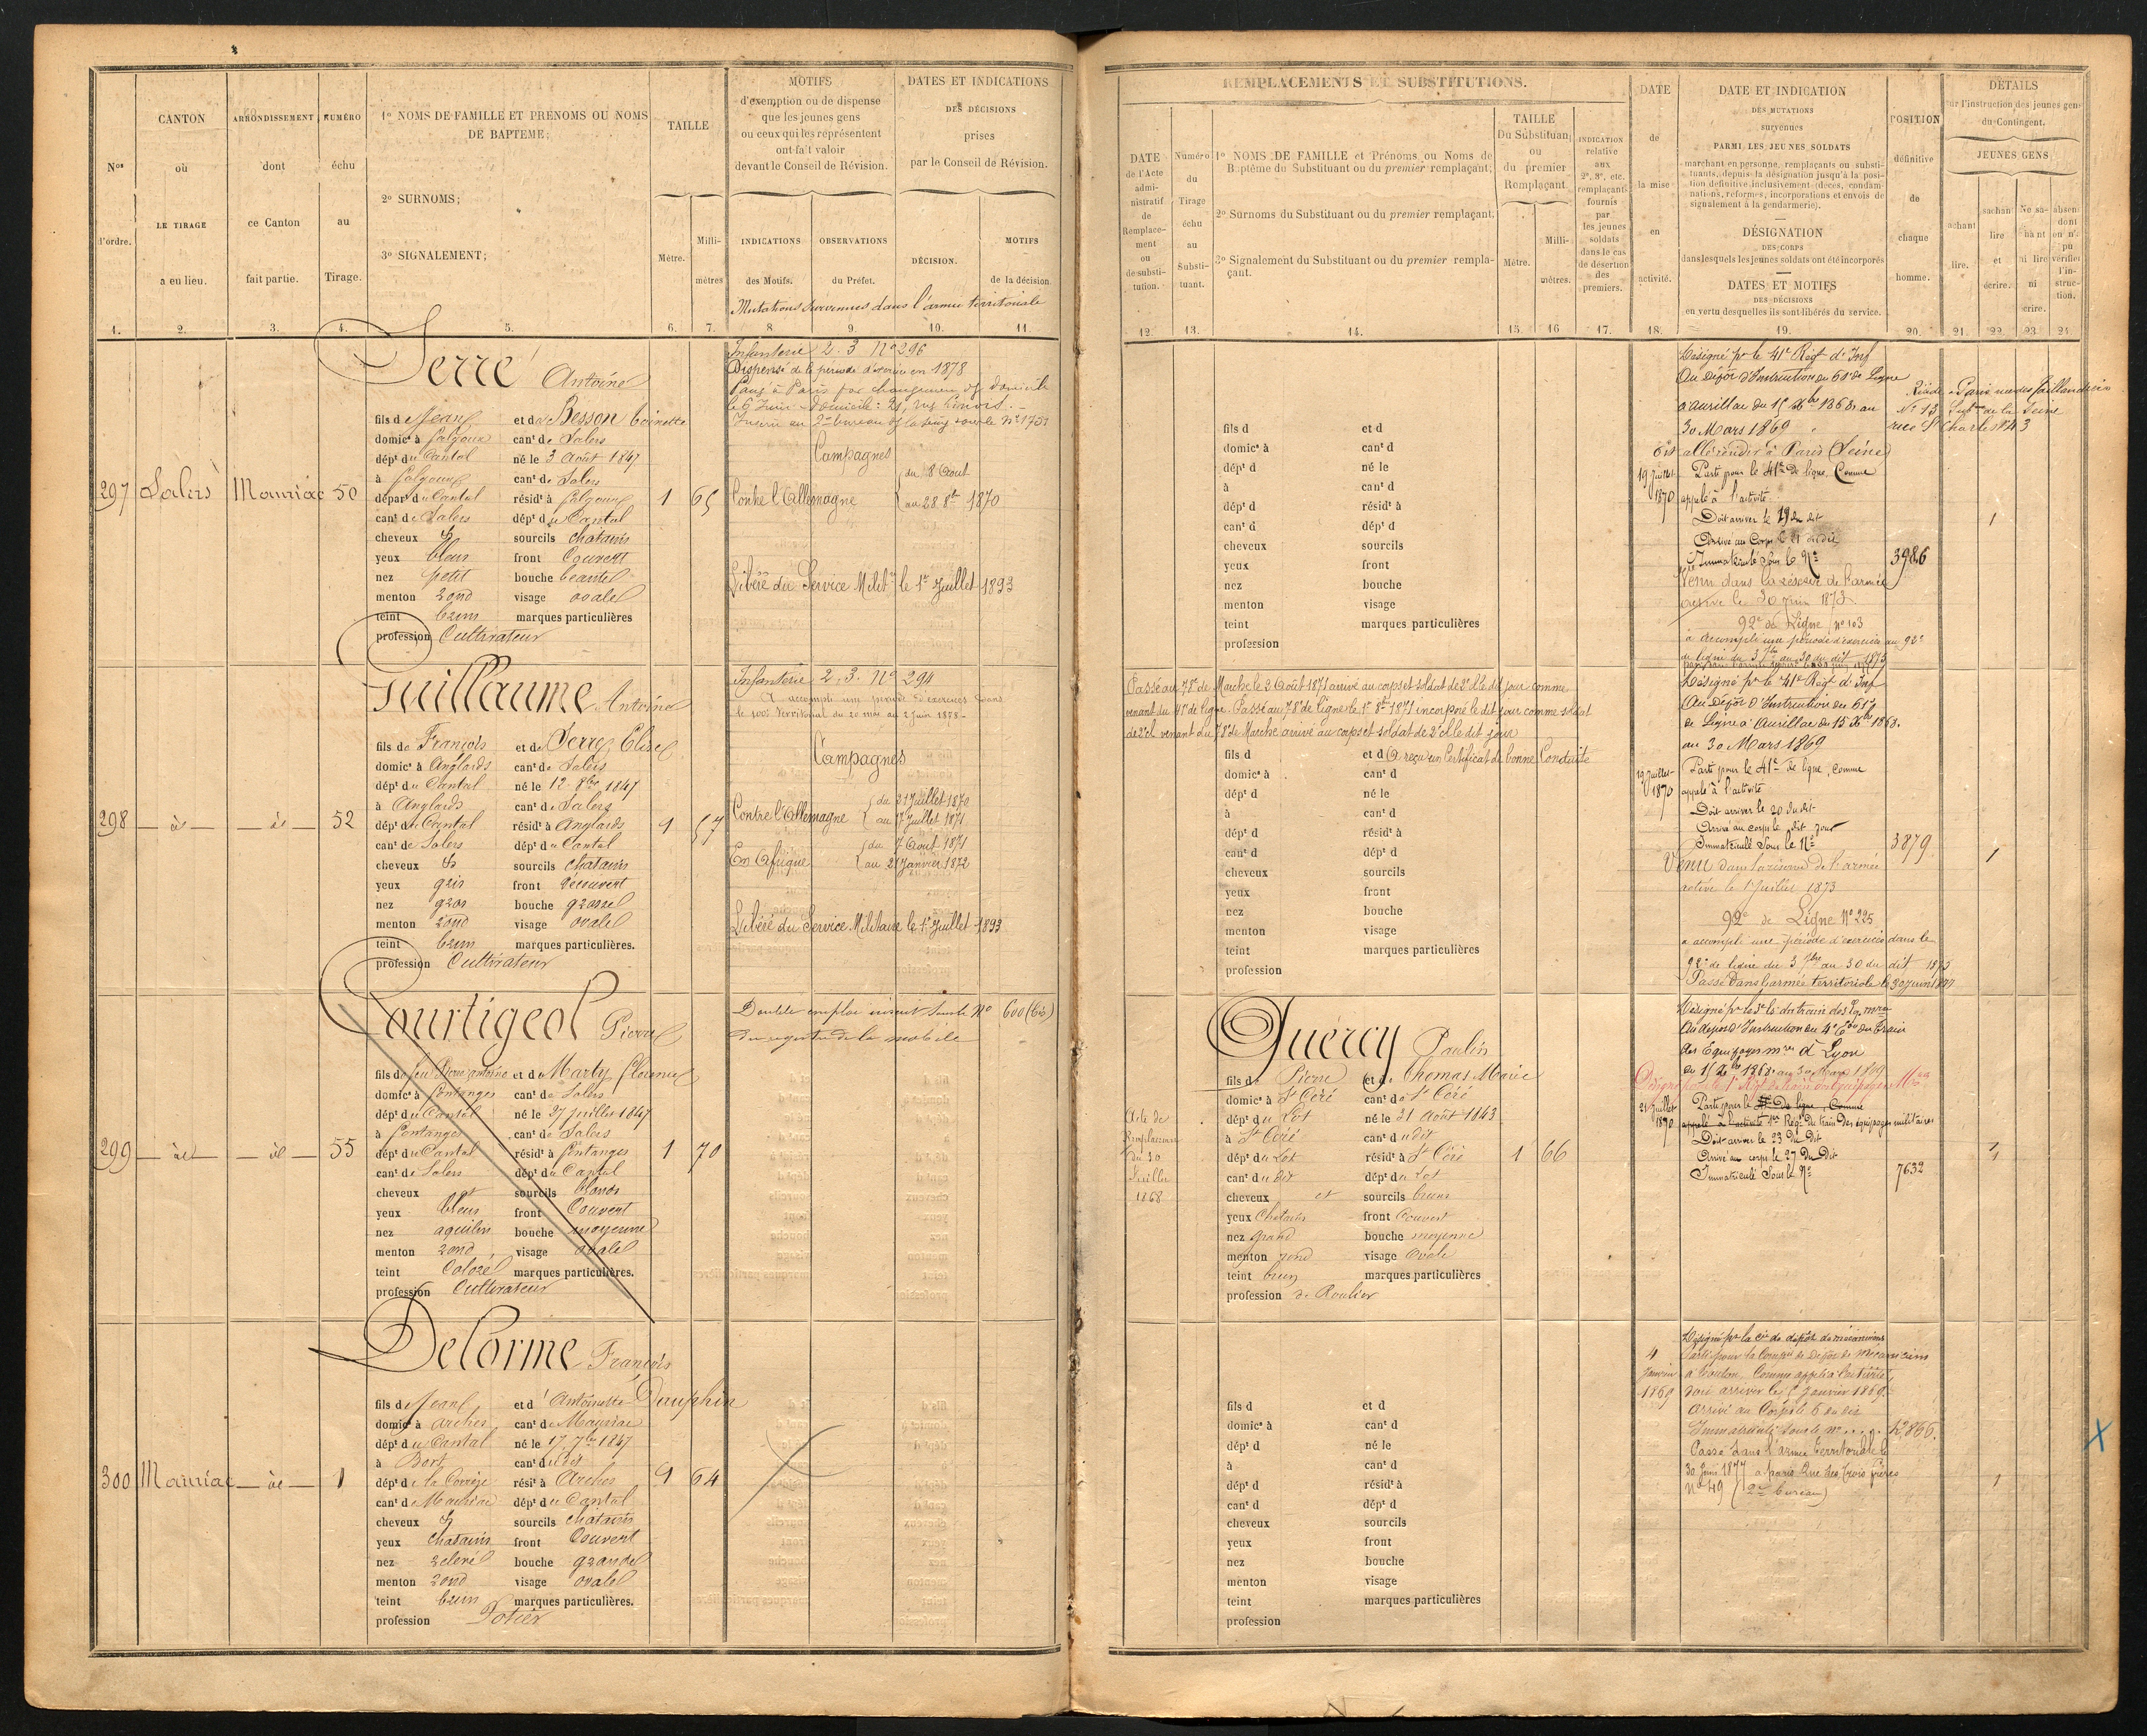 Nos
d'ordre.
1.
CANTON
où
LE TIRAGE
a eu lieu.
2.
ARRONDISSEMENT
dont
ce Canton
fait partie.
3.
NUMÉRO
échu
au
Tirage.
4.
1º NOMS DE FAMILLE ET PRÉNOMS OU NOMS
DE BAPTÊME;
2º SURNOMS;
3º SIGNALEMENT;
5.
TAILLE
Mètre.
6.
Milli-
mètres
7.
MOTIFS
d'exemption ou de dispense
que les jeunes gens
ou ceux qui les représentent
ont fait valoir
devant le Conseil de Révision.
INDICATIONS
des Motifs.
8.
OBSERVATIONS
du Préfet.
9.
DATES ET INDICATIONS
DES DÉCISIONS
prises
par le Conseil de Révision.
DÉCISION.
10.
MOTIFS
de la décision
11.
Mutations survenues dans l'armée territoriale
297 Salers Mauriac 50
Serre Antoine
fils de Jean et de Besson Toinette
domic. à Falgoux cant de Salers
dépt du Cantal né le 3 Août 1847
à Falgoux cant de Salers
départ du Cantal résidt à Falgoux
cant de Salers dépt du Cantal
cheveux et sourcils chatains
yeux bleus front Couvert
nez petit bouche
menton rond visage ovale
teint brun marques particulières
profession Cultivateur
1 65
Infanterie 2. 3 Nº 296
Dispensé de la période d'exercice en 1878
Campagnes
Contre l'Allemagne du 8 Août
au 28 8bre 1870
Libéré du Service Milit. le 1er Juillet 1893
298 52
Guillaume Antoine
fils de François et de Serre Elise
domic. à Anglards cant de Salers
dépt du Cantal né le 12 8bre 1847
à Anglards cant de Salers
dépt du Cantal résidt à Anglards
cant de Salers dépt du Cantal
cheveux et sourcils chatains
yeux gris front découvert
nez gros bouche grosse
menton rond visage ovale
teint brun marques particulières.
profession Cultivateur
1 57
Infanterie 2. 3. Nº 294
A accompli une période d'exercices dans
le 100e Territorial du 20 mai au 2 Juin 1878 -
Campagnes
Contre l'Allemagne du 21 Juillet 1870
au 7 Juillet 1871
En Afrique du 7 Août 1871
au 21 Janvier 1872
Libéré du Service Militaire le 1er Juillet 1893
299 55
Courtigeol Pierre
fils de feu Pierre Antoine et de Marty Florence
domic. à Fontanges cant de Salers
dépt du Cantal né le 27 Juillet 1847
à Fontanges cant de Salers
dépt du Cantal résidt à Fontanges
cant de Salers dépt du Cantal
cheveux et sourcils blonds
yeux bleus front Couvert
nez aquilin bouche moyenne
menton rond visage ovale
teint Coloré marques particulières.
profession Cultivateur
1 70
Double emploi inscrit sous le Nº 600 (bis)
du registre de la mobile
300 Mauriac 1
Delorme François
fils de Jean et d'Antoinette Dauphin
domic. à Arches cant de Mauriac
dépt du Cantal né le 17 7bre 1847
à Bort cant dudit
dépt de la Corrèze rési. à Arches
cant de Mauriac dépt du Cantal
cheveux et sourcils chatains
yeux chatains front Couvert
nez relevé bouche grande
menton rond visage ovale
teint brun marques particulières.
profession Potier
1 64
REMPLACEMENTS ET SUBSTITUTIONS.
DATE
de l'Acte
admi-
nistratif
de
Remplace-
ment
ou
de substi-
tution.
12.
Numéro
du
Tirage
échu
au
Substi-
tuant.
13.
1º NOMS DE FAMILLE et Prénoms ou Noms de
Baptême du Substituant ou du premier remplaçant;
2º Surnoms du Substituant ou du premier remplaçant.
3º Signalement du Substituant ou du premier rempla-
çant.
14.
TAILLE
Du Substituant
ou
du premier
Remplaçant
Mètre.
15.
Milli-
mètres.
16
INDICATION
relative
aux
2e, 3e, etc.
remplaçants
fournis
par
les jeunes
soldats
dans le cas
de désertion
des
premiers.
17.
DATE
de
la mise
en
activité.
18.
DATE ET INDICATION
DES MUTATIONS
survenues
PARMI LES JEUNES SOLDATS
marchant en personne, remplaçants ou substi-
tuants, depuis la désignation jusqu'à la posi-
tion définitive inclusivement (décès, condam-
nations, réformes, incorporations et envois de
signalement à la gendarmerie).
DÉSIGNATION
DES CORPS
dans lesquels les jeunes soldats ont été incorporés
DATES ET MOTIFS
DES DÉCISIONS
en vertu desquelles ils sont libérés du service.
19.
POSITION
définitive
de
chaque
homme.
20.
DÉTAILS
sur l'instruction des jeunes gens
du Contingent.
JEUNES GENS
sachant
lire.
21.
sachant
lire
et
écrire.
22.
Ne sa-
chant
ni lire
ni
écrire.
23.
absens
dont
on n'a
pu
vérifier
l'in-
struc-
tion.
24.
fils d et d
domic. à cant d
dépt d né le
à cant d
dépt d résidt à
cant d dépt d
cheveux sourcils
yeux front
nez bouche
menton visage
teint marques particulières
profession
Désigné pr le 41e Régt d'Inf
Au dépôt d'Instruction du 61e de Ligne
à Aurillac du 15 Xbre 1868 au
30 Mars 1869
allé résider à Paris (Seine)
19 Juillet 1870
Parti pour le 41e De ligne, Comme
appelé à l'activité
Doit arriver le 19 du dit
Arrivé au Corps le 21 du dit
Immatriculé sous le Nº 3986
Venu dans la réserve de l'armée
active le 30 Juin 1873
92e de Ligne nº 103
a accompli une période d'exercices au 92e
de ligne du 3 7bre au 30 du dit 1875
1
Passé au 78e de Marche le 2 Août 1871 arrivé au corps et soldat de 2e cl le dit jour comme
venant du 41e de ligne. Passé au 78e de ligne le 1er 8bre 1871 incorporé le dit jour comme soldat
de 2e cl venant du 78e de Marche arrivé au corps et soldat de 2e cl le dit jour
A reçu un Certificat de bonne Conduite
fils d et d
domic. à cant d
dépt d né le
à cant d
dépt d résidt à
cant d dépt d
cheveux sourcils
yeux front
nez bouche
menton visage
teint marques particulières
profession
Désigné pr le 41e Régt d'Inf
Au Dépôt d'Instruction du 61e
de Ligne à Aurillac du 15 Xbre 1868
au 30 Mars 1869
19 Juillet 1870
Parti pour le 41e de ligne, comme
appelé à l'activité
Doit arriver le 20 du dit
Arrivé au corps le dit jour
Immatriculé Sous le Nº 3879
Venu dans la réserve de l'armée
active le 1er Juillet 1873
92e de Ligne Nº 225
a accompli une période d'exercices dans le
92e de ligne du 3 7bre au 30 du dit 1875
Passé Dans l'armée territoriale le 30 juin 1877
1
Acte de
Remplacement
du 30
Juillet
1868
Quercy Paulin
fils de Pierre et de Thomas Marie
domic. à St Céré cant de St Céré
dépt du Lot né le 31 Août 1843
à St Céré cant dudit
dépt du Lot résidt à St Céré
cant du dit dépt du Lot
cheveux et sourcils bruns
yeux Chatains front Couvert
nez grand bouche moyenne
menton rond visage Ovale
teint brun marques particulières
profession de Roulier
1 66
des Equipages mres à Lyon
du 15 Xbre 1868 au 30 Mars 1869
21 Juillet 1870
Parti pour le 41e De ligne, Comme
appelé à l'activité 1er Régt du train Des équipages militaires
Doit arriver le 23 Du Dit
Arrivé au corps le 27 Du Dit
Immatriculé Sous le Nº 7632
1
fils d et d
domic. à cant d
dépt d né le
à cant d
dépt d résidt à
cant d dépt d
cheveux sourcils
yeux front
nez bouche
menton visage
teint marques particulières
profession
4 Janvier 1869
Désigné pr la cie de dépôt de mécaniciens
à Toulon, Comme appelé à l'activité,
doit arriver le 5 Janvier 1869.
Arrivé au Corps le 6 du dit
Immatriculé sous le nº 42866.
Passé dans l'armée territoriale le
30 Juin 1877 à Paris Rue des trois frères
nº 49 (2e bureau)
1